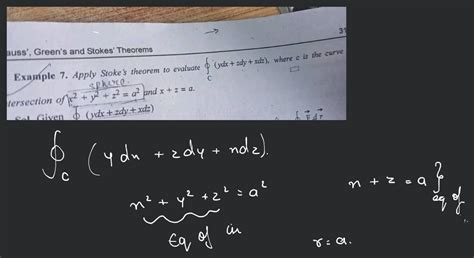 31
auss', Green's and Stokes' Theorems
Example 7. Apply Stoke's theorem to evaluate ∮ (ydx + zdy + xdz), where c is the curve
C
sphere
tersection of x² + y² + z² = a² and x + z = a.
Sol. Given ∮ (ydx + zdy + xdz)
∮c (ydx + zdy + xdz).
x² + y² + z² = a²
x + z = a } eq of
Eq of
r = a.